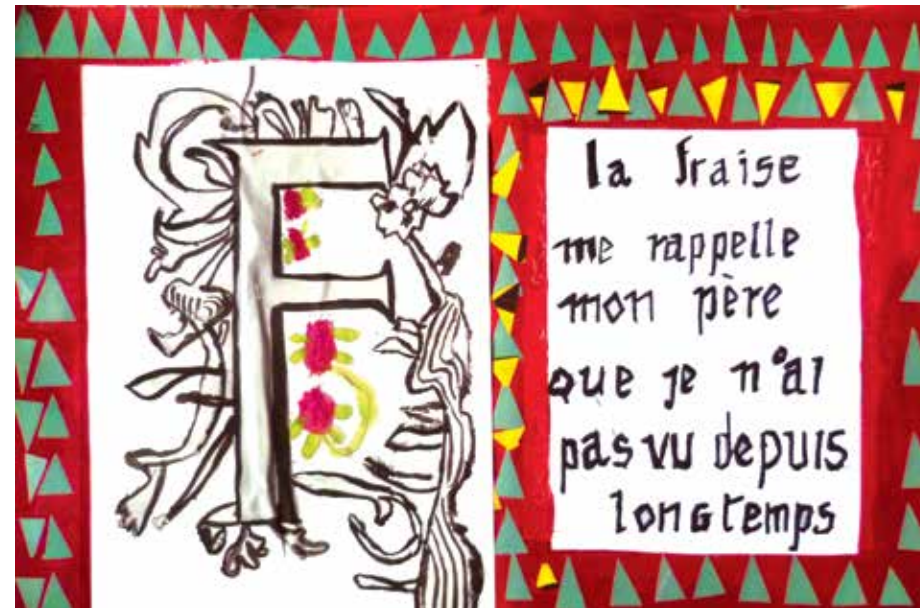 F
la fraise
me rappelle
mon père
que je n'ai
pas vu depuis
longtemps